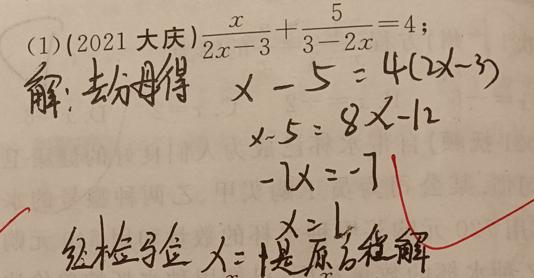 (1)(2021 大庆) x/(2x-3) + 5/(3-2x) = 4;
解: 去分母得 x - 5 = 4(2x-3)
x-5 = 8x-12
-7x = -7
x = 1
经检验 x=1是原方程解